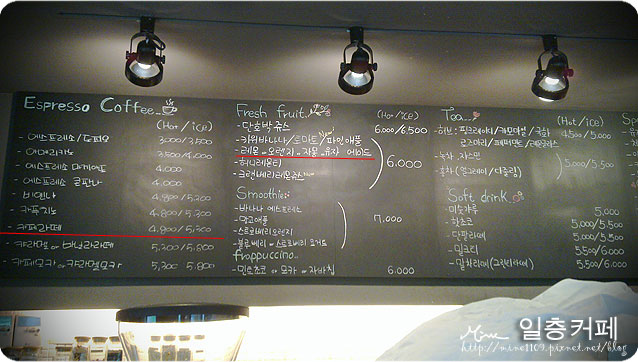 Espresso Coffee
(Hot / ice)
- 에스프레소 / 도피오 3,000/3,500
- 아메리카노 3,500/4,000
- 에스프레소 마끼아또 4,000
- 에스프레소 콘파나 4,000
- 비엔나 4,800/5,300
- 카푸치노 4,800/5,300
- 카페라떼 4,800/5,300
- 카라멜 or 바닐라라떼 5,300/5,800
- 카페모카 or 카라멜모카 5,300 5,800
Fresh fruit..
(Hot/ice)
- 단호박 쥬스 6,000/6,500
- 키위 바나나 / 토마토 / 파인애플
- 레몬 - 오렌지 - 자몽 - 유자 에이드
- 허니레몬티 6,000
- 크랜베리레몬쥬스
Smoothie
- 바나나 에스프레소
- 망고애플 7,000
- 스트로베리오렌지
- 블루베리 - 스트로베리 요거트
frappuccino..
- 민트초코 or 모카 or 자바칩 6.000
Tea
(Hot / ice)
- 허브 : 핑크레이디 / 카모마일 / 국화 4,500/5,000
로즈마리 / 페퍼민트 /
- 녹차 쟈스민
- 홍차 (얼그레이 / 다즐링) 5,000/5,500
Soft drink
- 미숫가루 5,000
- 핫초코 5,000/5,500
- 단팥라떼 5,000/5,500
- 밀크티 5,500/6,000
- 말차라떼 (그린티라떼) 5,500/6.000
Sp
Mine 일층카페
http://mine1109.pixnet.net/blog